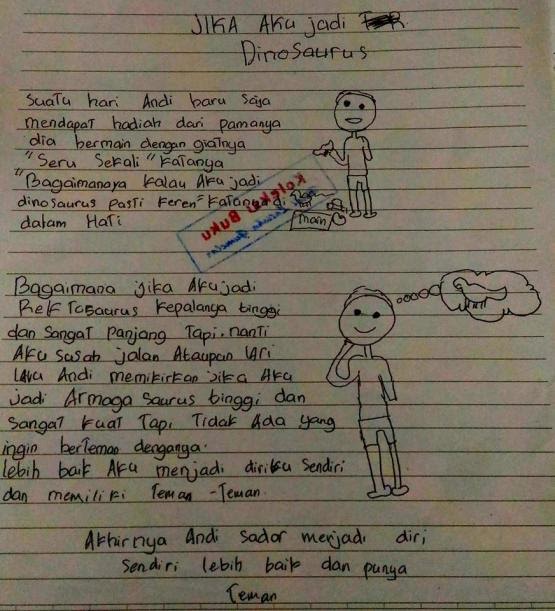 JIKA AKu jadi
DinoSaurus
Suatu hari Andi baru Saja
mendapat hadiah dari pamanya
dia bermain dengan giatnya
"Seru Sekali" Katanya
"Bagaimanaya kalau Aku jadi
dinosaurus pasti keren" Katanya di
dalam Hati
Koleksi Buku
main
Bagaimana jika Aku jadi
kepalanya tinggi
dan Sangat panjang Tapi nanti
Aku susah jalan Ataupun lari
lalu Andi memikirkan jika Aku
jadi Armaga Saurus tinggi dan
Sangat kuat Tapi Tidak Ada yang
ingin berteman denganya.
lebih baik Aku menjadi diriku Sendiri
dan memiliki Teman -Teman.
Akhirnya Andi sadar menjadi diri
Sendiri lebih baik dan punya
Teman